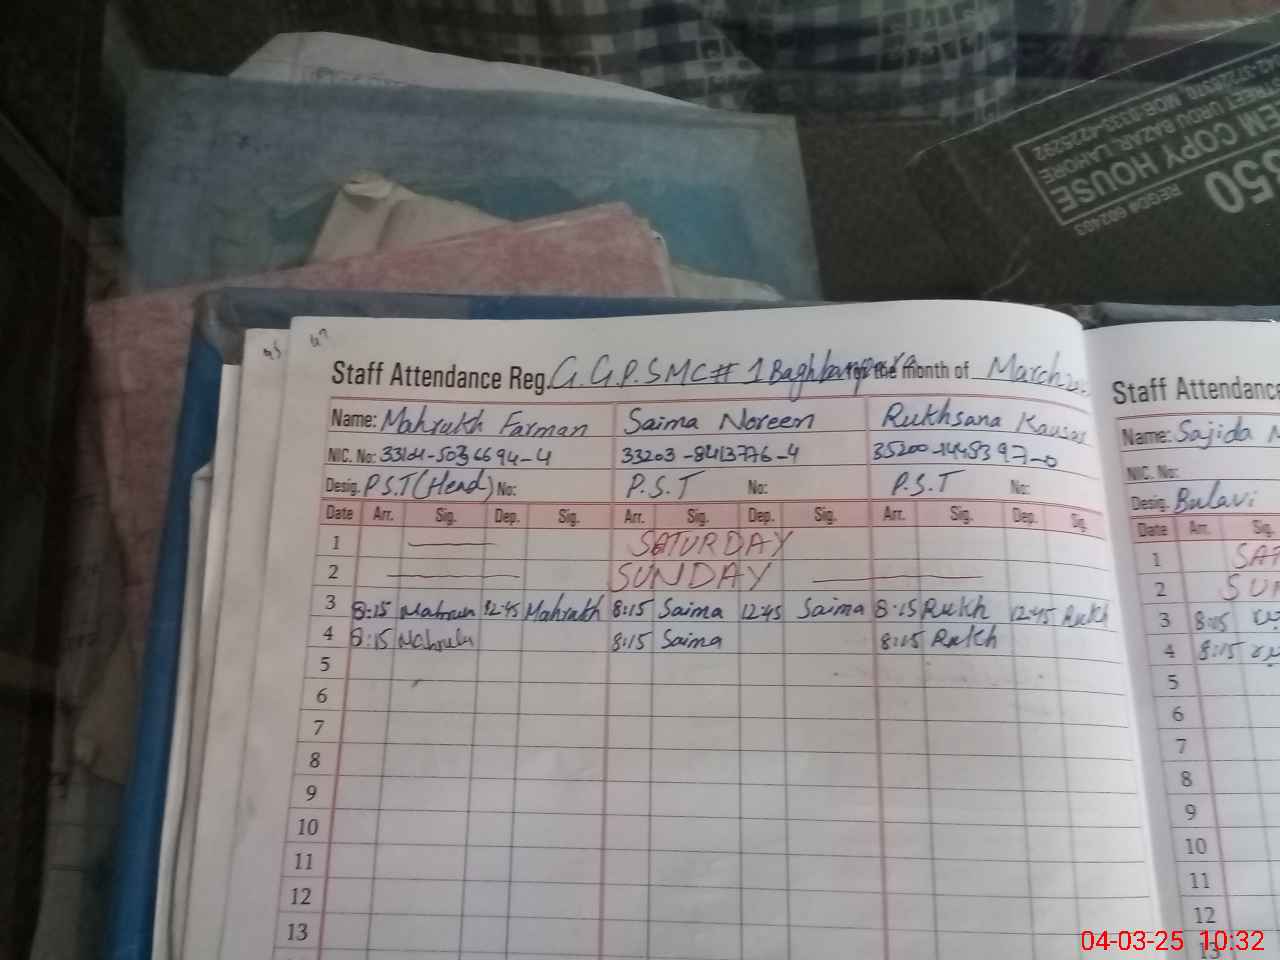 042-37226370, MOB:0333-4225292
STREET URDU BAZAR, LAHORE
EM COPY HOUSE
REGD# 602493
350
47
Staff Attendance Reg. G.G.P.S MC# 1 Baghbanpura for the month of March
Name: Mahrukh Farman Saima Noreen Rukhsana Kausar
NIC. No: 33104-5036694-4 33203-8413776-4 35200-1445397-0
Desig. P.S.T (Head) No: P.S.T No: P.S.T No:
Date Arr. Sig. Dep. Sig. Arr. Sig. Dep. Sig. Arr. Sig. Dep. Sig.
1 SATURDAY
2 SUNDAY
3 8:15 Mahrukh 12:45 Mahrukh 8:15 Saima 12:45 Saima 8:15 Rukh 12:45 Rukh
4 8:15 Mahrukh 8:15 Saima 8:15 Rukh
5
6
7
8
9
10
11
12
13
Staff Attendance
Name: Sajida
NIC. No:
Desig. Bulavi
Date Arr. Sig.
1 SAT
2 SUN
3 8:15
4 8:15
5
6
7
8
9
10
11
12
13
04-03-25 10:32